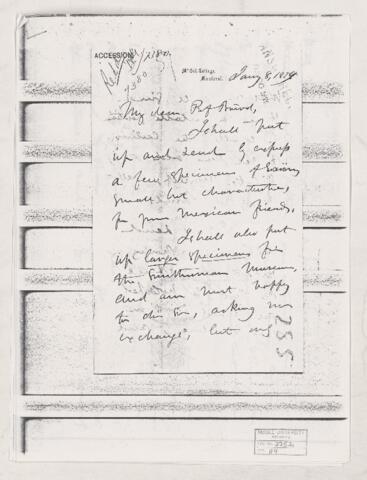 ACCESSION
McGill College,
Montreal.
Jany 8, 1879
My dear Prof Baird,
I shall put
up and send by express
a few specimens of Eozoon
small but characteristic,
for your Mexican friends.
I shall also put
up larger specimens for
the Smithsonian Museum,
and am most happy
to do so, asking no
exchange, but only
255
McGILL UNIVERSITY
ARCHIVES